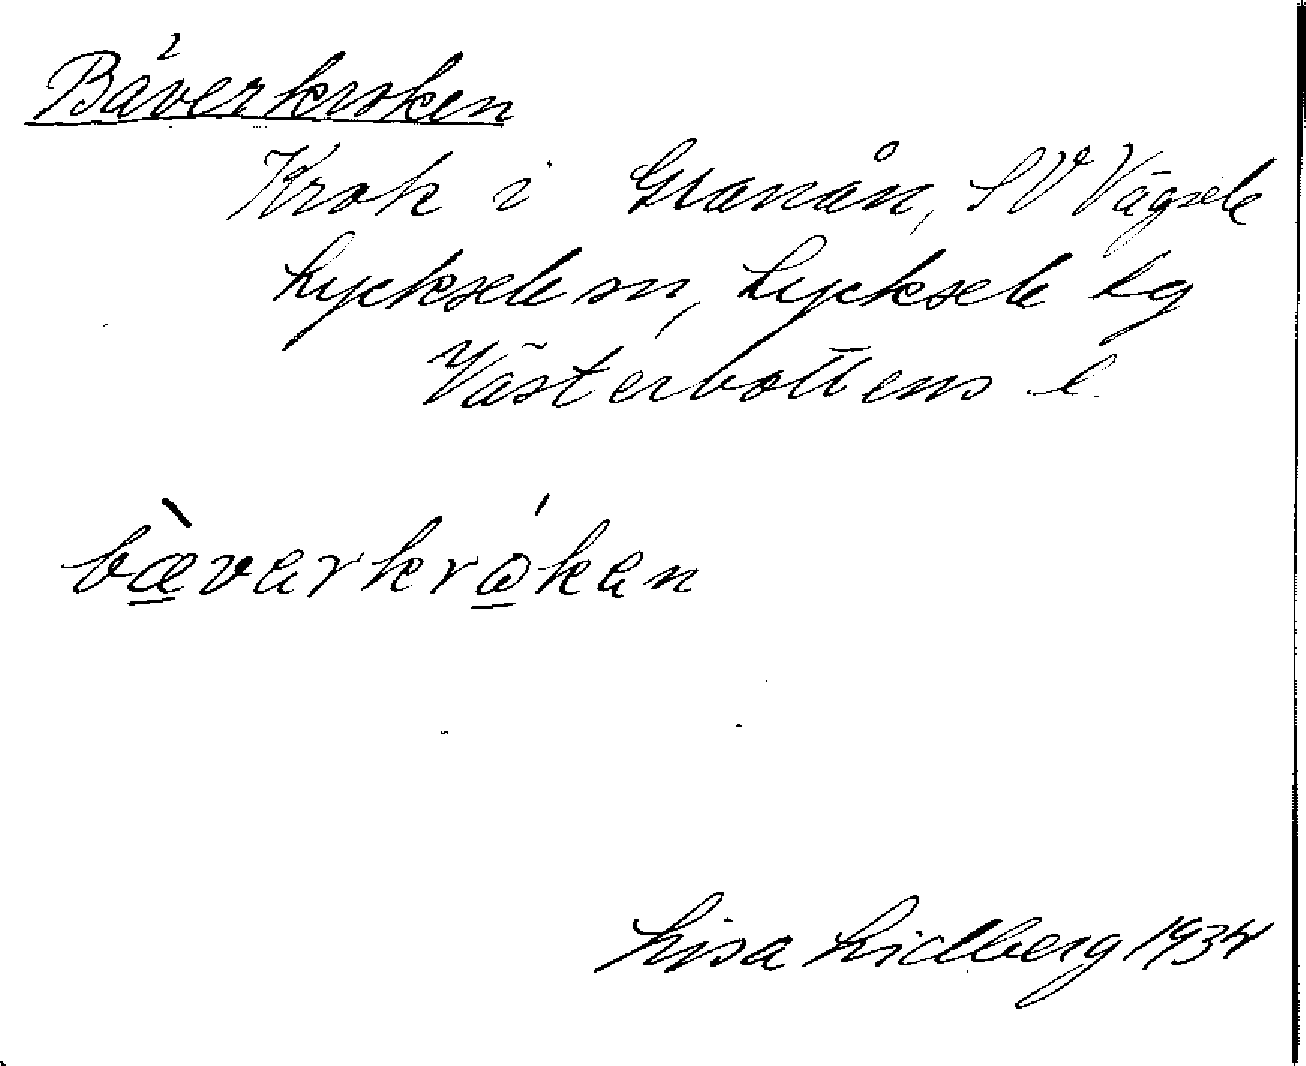 Bäverkroken
Krok i Granån, SV Vägsele
Lycksele sn, Lycksele lg
Västerbottens l.
bæ̀verkróken
Lisa Lidberg 1934